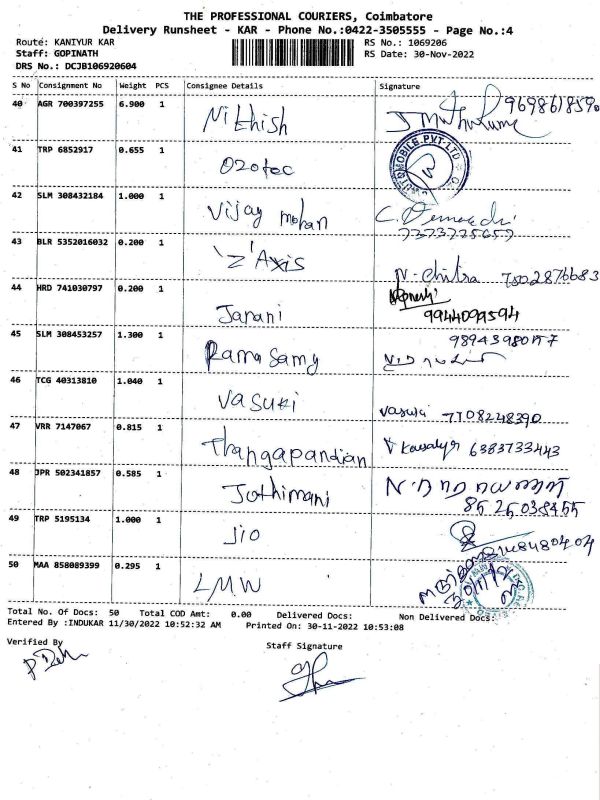 THE PROFESSIONAL COURIERS, Coimbatore
Delivery Runsheet - KAR - Phone No.:0422-3505555 - Page No.:4
Route: KANIYUR KAR
RS No.: 1069206
Staff: GOPINATH
RS Date: 30-Nov-2022
DRS No.: DCJB106920604
S No Consignment No Weight PCS Consignee Details Signature
40 AGR 700397255 6.900 1 Nithish
41 TRP 6852917 0.655 1 Ozotec
42 SLM 308432184 1.000 1 Vijay mohan
43 BLR 5352016032 0.200 1 'Z' Axis N. Chitra 7502876683
44 HRD 741030797 0.200 1 Janani
9944099594
45 SLM 308453257 1.300 1 Rama Samy
46 TCG 40313810 1.040 1 Vasuki Vasuki 7708248390
47 VRR 7147067 0.815 1 Thangapandian 6383733443
48 JPR 502341857 0.585 1 Jothimani
49 TRP 5195134 1.000 1 Jio
50 MAA 858089399 0.295 1 LMW
Total No. Of Docs: 50 Total COD Amt: 0.00 Delivered Docs: Non Delivered Docs:
Entered By :INDUKAR 11/30/2022 10:52:32 AM Printed On: 30-11-2022 10:53:08
Verified By
Staff Signature